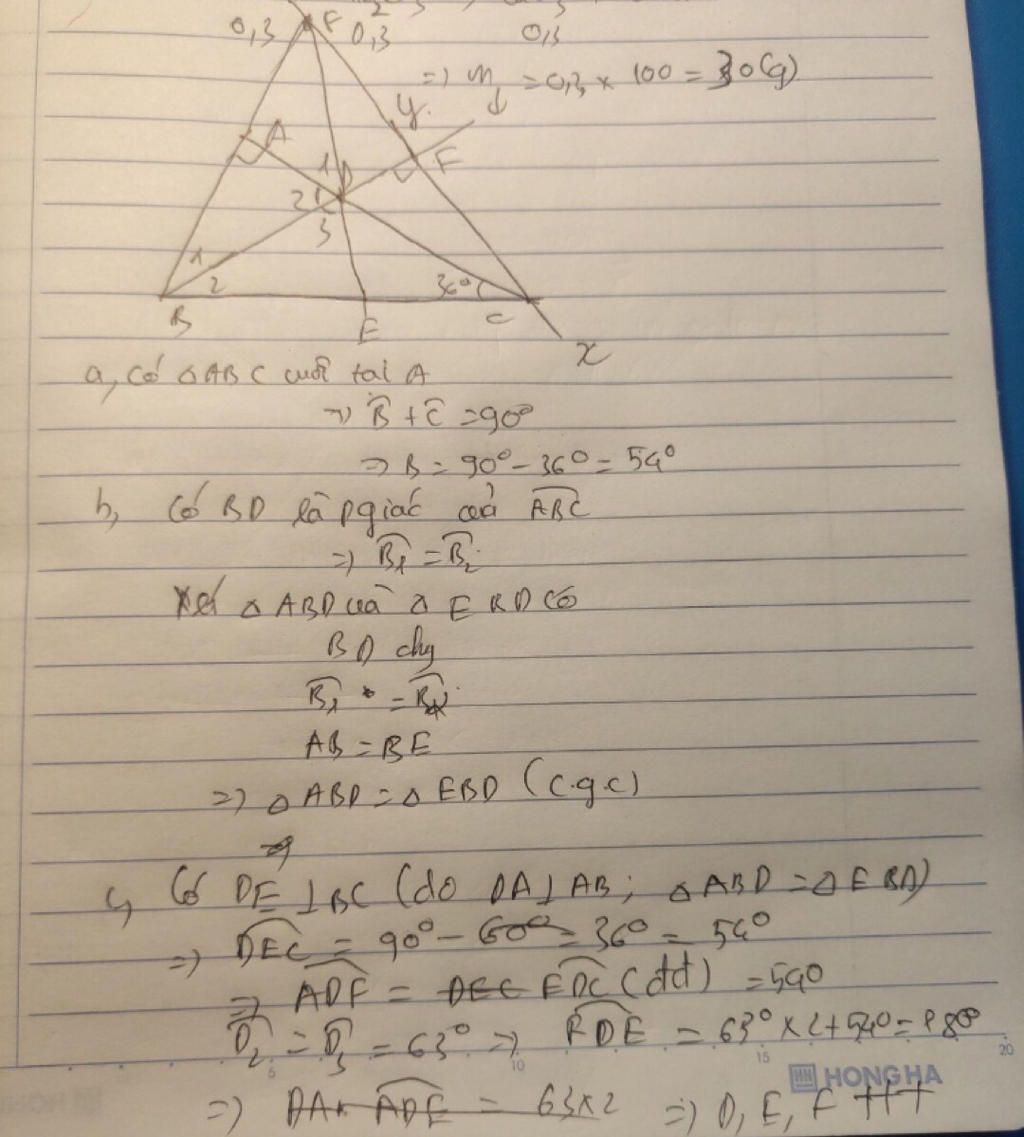 0,3 F 0,3 0,3
=) m↓ = 0,3 x 100 = 30(g)
A y F
1 D
2
3
1
2 36° (
B E C
x
a, Có △ABC vuông tại A
=) B̂ + Ĉ = 90°
=> B = 90° - 36° = 54°
b, Có BD là pgiác của ABC
=) B1 = B2
Xét △ ABD và △ EBD có
BD chg
B1 = B2
AB = BE
=) △ ABD = △ EBD (c.g.c)
c, Có DE ⊥ BC (do DA ⊥ AB; △ ABD = △ EBD)
=) DEC = 90° - 36° = 54°
=> ADF = EDC (đđ) = 54°
D2 = D3 = 63° => FDE = 63° x 2 + 54° = 180°
5 10 15 20
HH HONG HA
=) ADE = 63x2 =) D, E, F thh